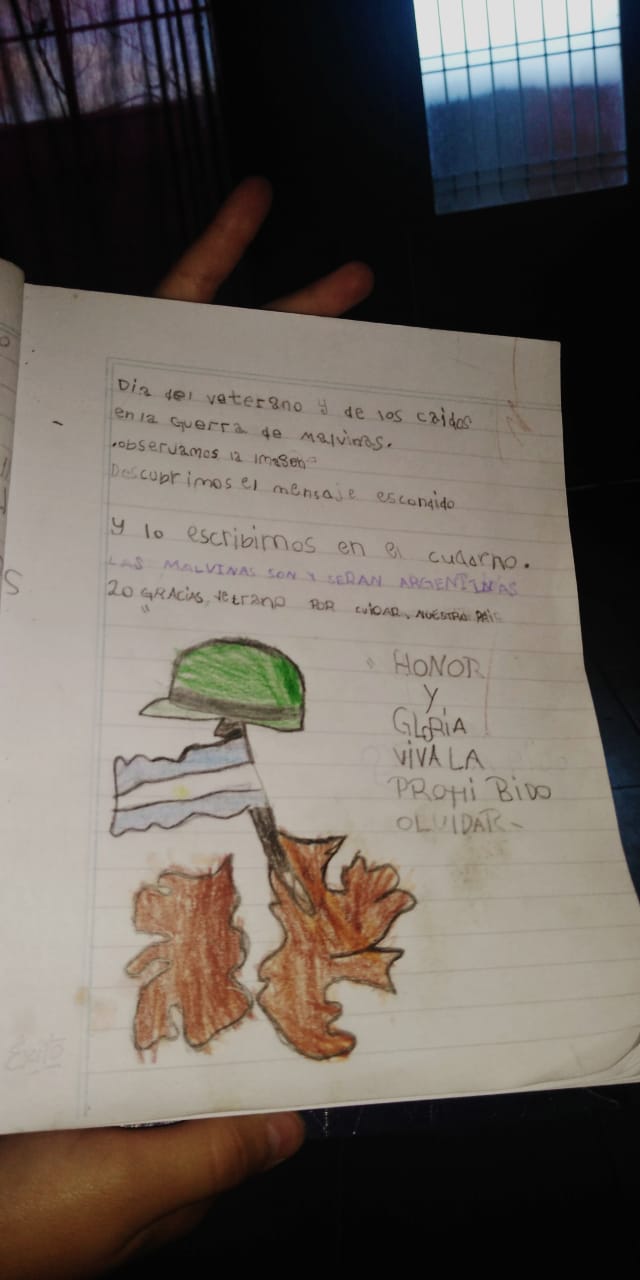 Dia del veterano y de los caidos
en la Guerra de malvinas.
.observamos la imagen
Descubrimos el mensaje escondido
y lo escribimos en el cuaderno.
LAS MALVINAS SON Y SERAN ARGENTINAS
20 GRACIAS, vetrano POR cuidar, NUESTRO PAIS
HONOR
Y
GLORIA
VIVA LA
PROHIBIDO
OLVIDAR
Éxito